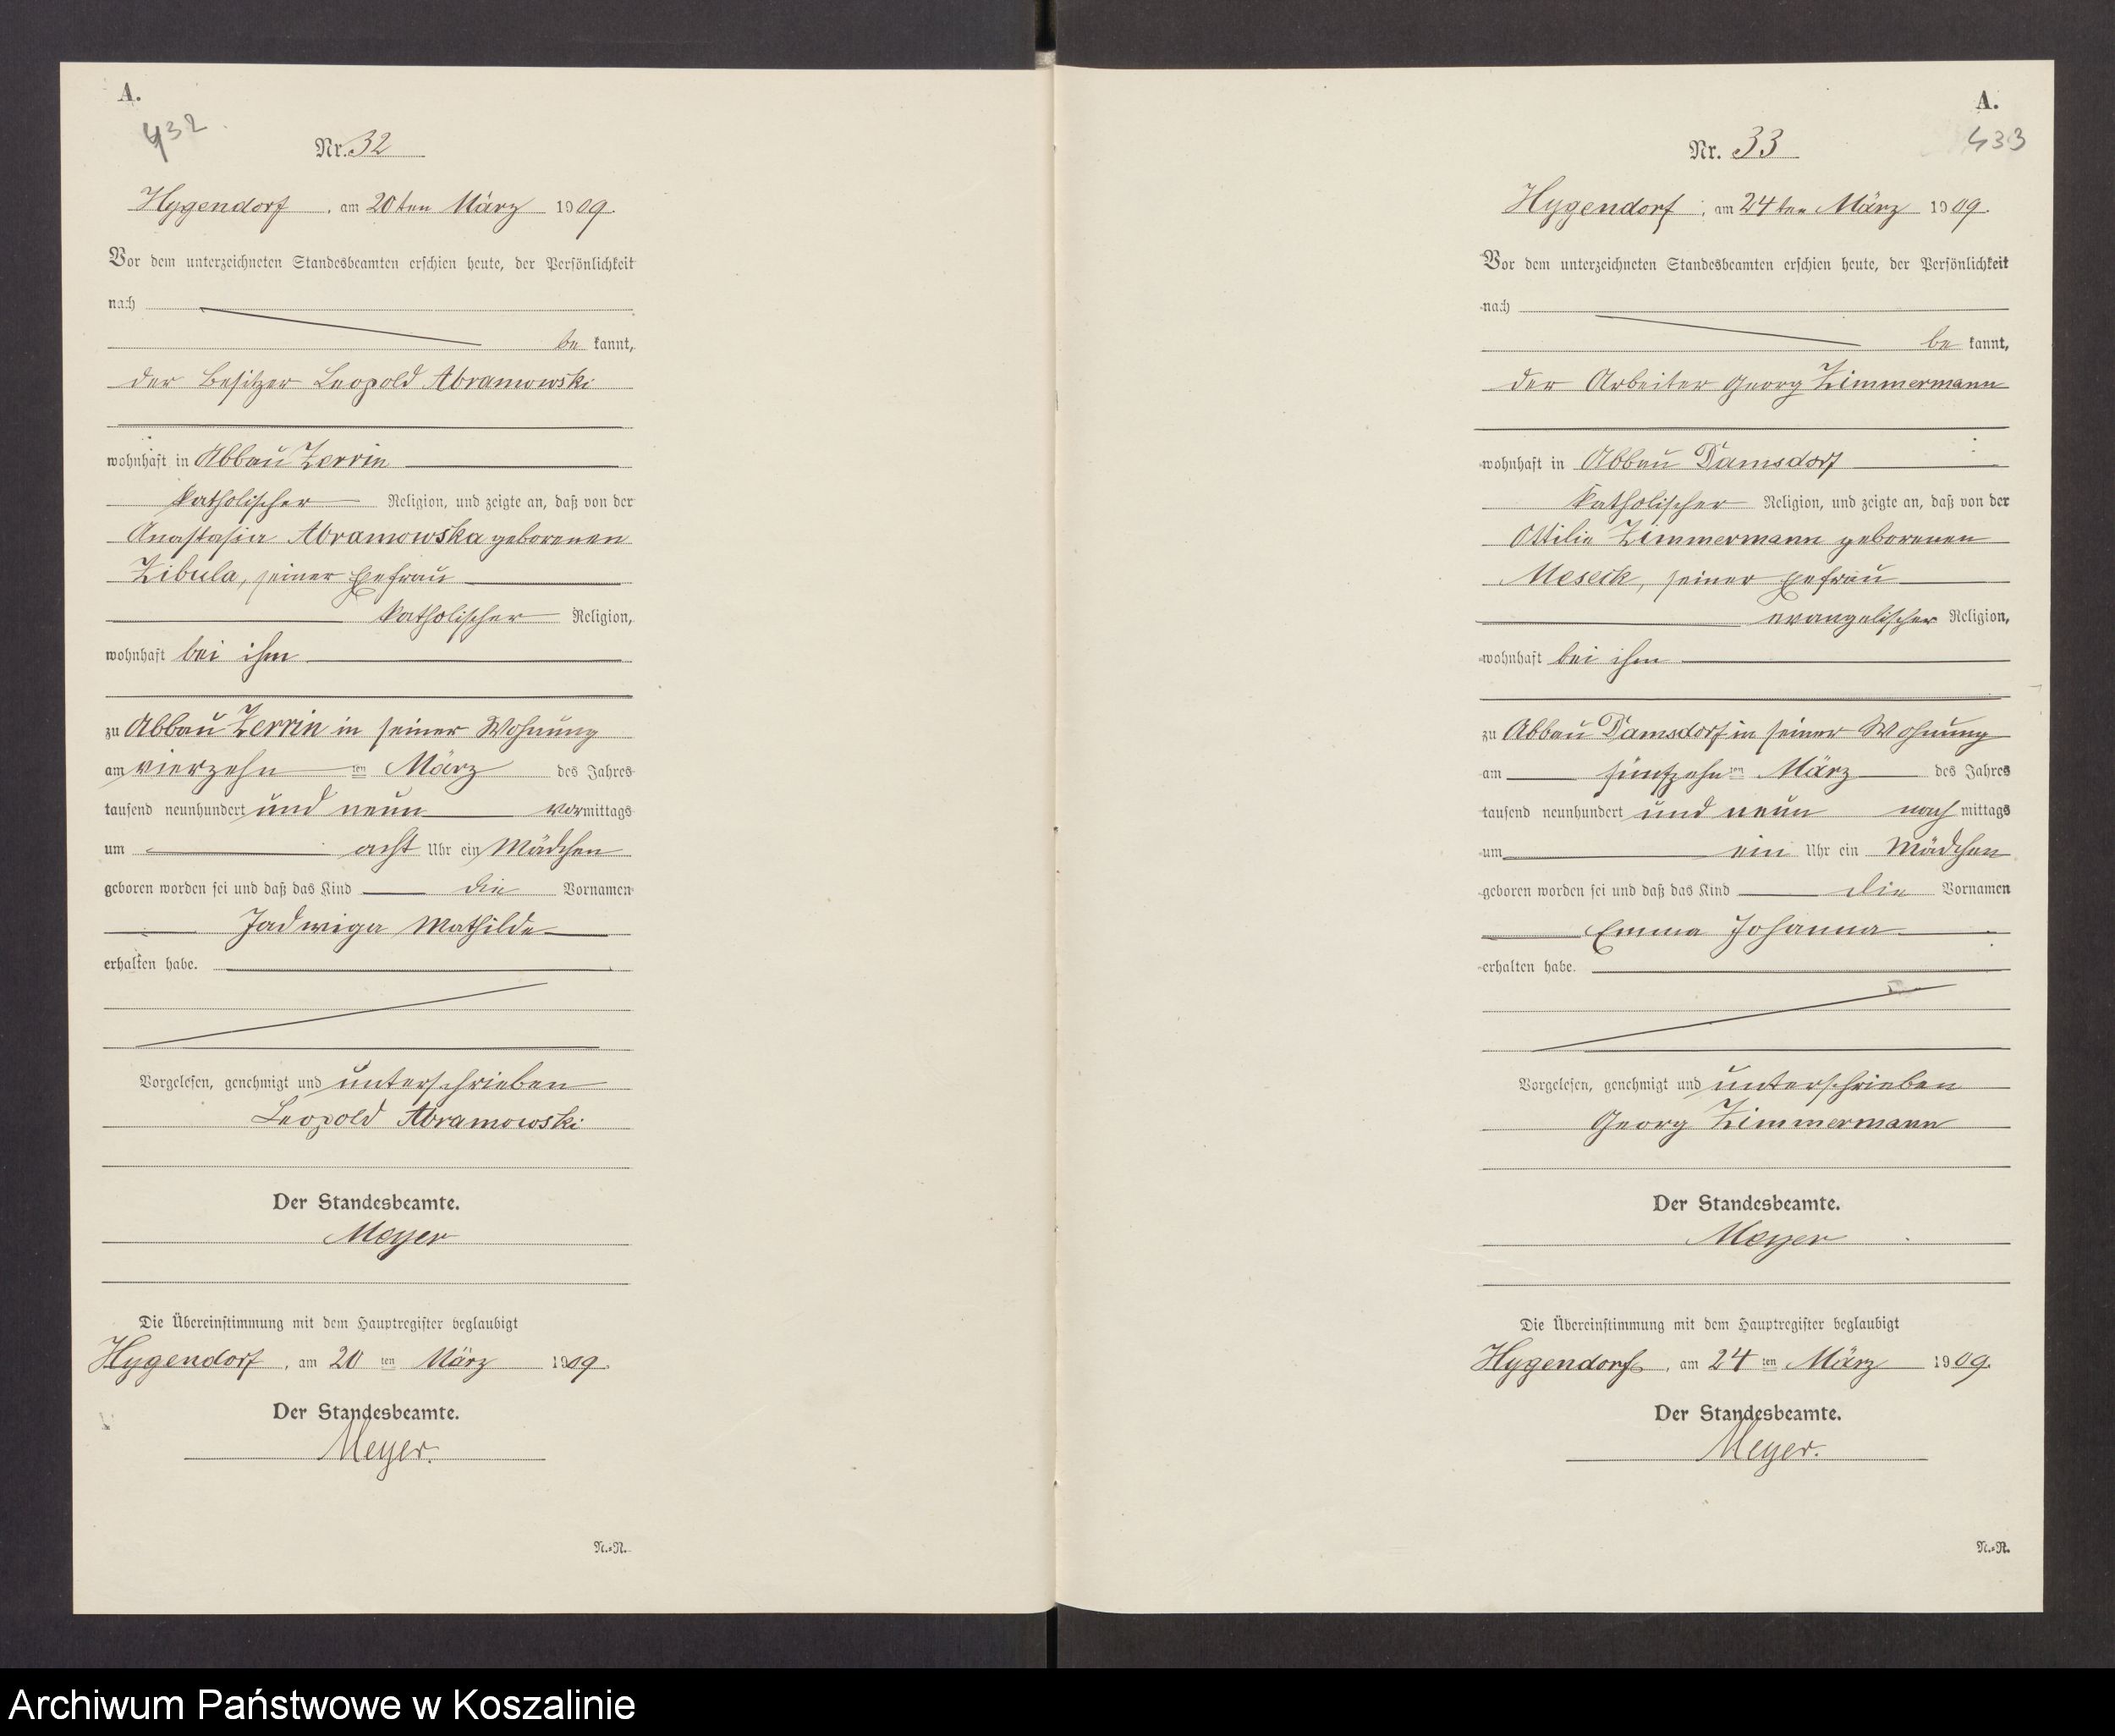 A.
432
Nr. 32
Hygendorf, am 20ten März 1909.
Vor dem unterzeichneten Standesbeamten erschien heute, der Persönlichkeit
nach
be kannt,
der Besitzer Leopold Abramowski
wohnhaft in Abbau Zerrin
katholischer Religion, und zeigte an, daß von der
Anastasia Abramowska geborenen
Zibula, seiner Ehefrau
katholischer Religion,
wohnhaft bei ihm
zu Abbau Zerrin in seiner Wohnung
am vierzehn ten März des Jahres
tausend neunhundert und neun vormittags
um acht Uhr ein Mädchen
geboren worden sei und daß das Kind die Vornamen
Jadwiga Mathilde
erhalten habe.
Vorgelesen, genehmigt und unterschrieben
Leopold Abramowski
Der Standesbeamte.
Meyer
Die Übereinstimmung mit dem Hauptregister beglaubigt
Hygendorf, am 20 ten März 1909.
Der Standesbeamte.
Meyer.
N.=R.
A.
433
Nr. 33
Hygendorf, am 24ten März 1909.
Vor dem unterzeichneten Standesbeamten erschien heute, der Persönlichkeit
nach
be kannt,
der Arbeiter Georg Zimmermann
wohnhaft in Abbau Damsdorf
katholischer Religion, und zeigte an, daß von der
Ottilie Zimmermann geborenen
Meseck, seiner Ehefrau
evangelischer Religion,
wohnhaft bei ihm
zu Abbau Damsdorf in seiner Wohnung
am fünfzehn ten März des Jahres
tausend neunhundert und neun nach mittags
um ein Uhr ein Mädchen
geboren worden sei und daß das Kind die Vornamen
Emma Johanna
erhalten habe.
Vorgelesen, genehmigt und unterschrieben
Georg Zimmermann
Der Standesbeamte.
Meyer
Die Übereinstimmung mit dem Hauptregister beglaubigt
Hygendorf, am 24 ten März 1909.
Der Standesbeamte.
Meyer.
N.=R.
Archiwum Państwowe w Koszalinie